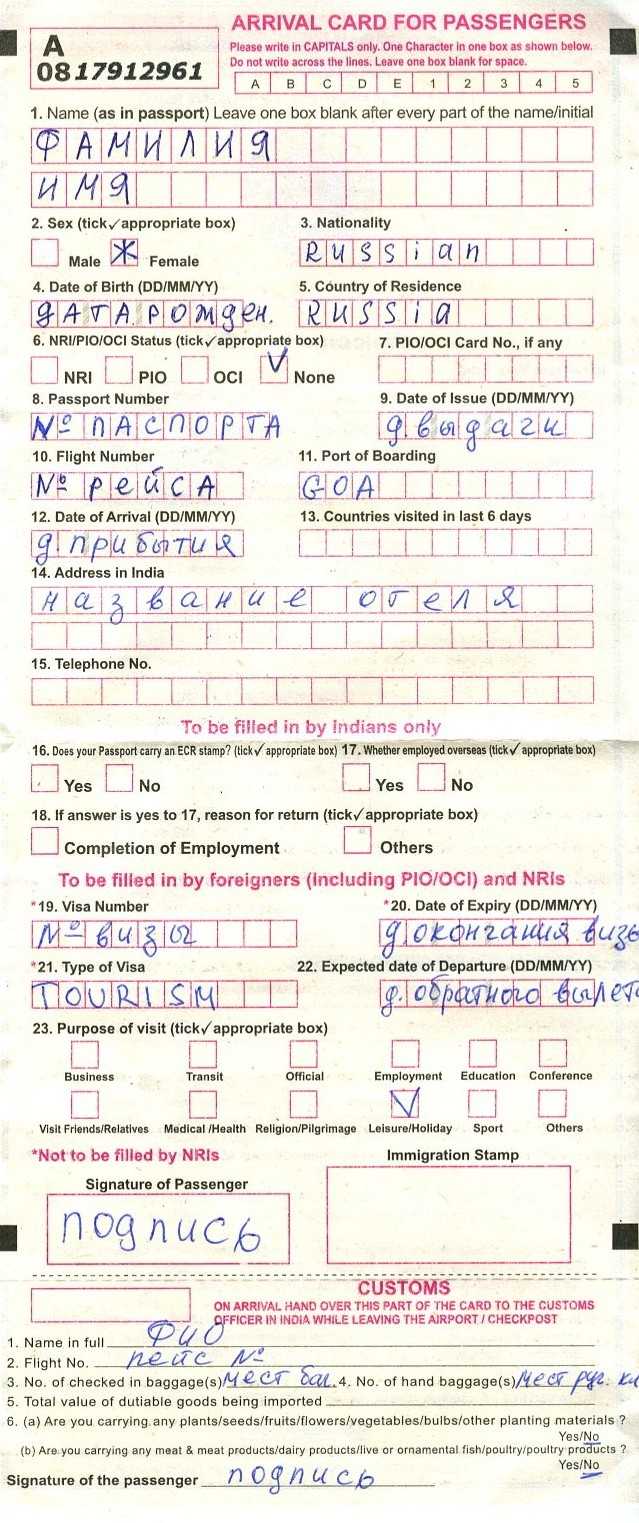 ARRIVAL CARD FOR PASSENGERS
A
0817912961
Please write in CAPITALS only. One Character in one box as shown below.
Do not write across the lines. Leave one box blank for space.
A B C D E 1 2 3 4 5
1. Name (as in passport) Leave one box blank after every part of the name/initial
ФАМИЛИЯ
ИМЯ
2. Sex (tick✓appropriate box) 3. Nationality
Male Female Russian
4. Date of Birth (DD/MM/YY) 5. Country of Residence
ДАТА РОЖДЕН. RUSSIA
6. NRI/PIO/OCI Status (tick✓appropriate box) 7. PIO/OCI Card No., if any
NRI PIO OCI None
8. Passport Number 9. Date of Issue (DD/MM/YY)
№ ПАСПОРТА д. выдачи
10. Flight Number 11. Port of Boarding
№ рейсА GOA
12. Date of Arrival (DD/MM/YY) 13. Countries visited in last 6 days
д. прибытия
14. Address in India
название отеля
15. Telephone No.
To be filled in by Indians only
16. Does your Passport carry an ECR stamp? (tick✓appropriate box) 17. Whether employed overseas (tick✓appropriate box)
Yes No Yes No
18. If answer is yes to 17, reason for return (tick✓appropriate box)
Completion of Employment Others
To be filled in by foreigners (Including PIO/OCI) and NRIs
*19. Visa Number *20. Date of Expiry (DD/MM/YY)
№ визы д. окончания визы
*21. Type of Visa 22. Expected date of Departure (DD/MM/YY)
TOURISM д. обратного вылета
23. Purpose of visit (tick✓appropriate box)
Business Transit Official Employment Education Conference
Visit Friends/Relatives Medical /Health Religion/Pilgrimage Leisure/Holiday Sport Others
*Not to be filled by NRIs Immigration Stamp
Signature of Passenger
подпись
CUSTOMS
ON ARRIVAL HAND OVER THIS PART OF THE CARD TO THE CUSTOMS
OFFICER IN INDIA WHILE LEAVING THE AIRPORT / CHECKPOST
1. Name in full ФИО
2. Flight No. рейс №
3. No. of checked in baggage(s) мест баг. 4. No. of hand baggage(s) мест руч. кл
5. Total value of dutiable goods being imported
6. (a) Are you carrying any plants/seeds/fruits/flowers/vegetables/bulbs/other planting materials ?
Yes/No
(b) Are you carrying any meat & meat products/dairy products/live or ornamental fish/poultry/poultry products ?
Yes/No
Signature of the passenger подпись